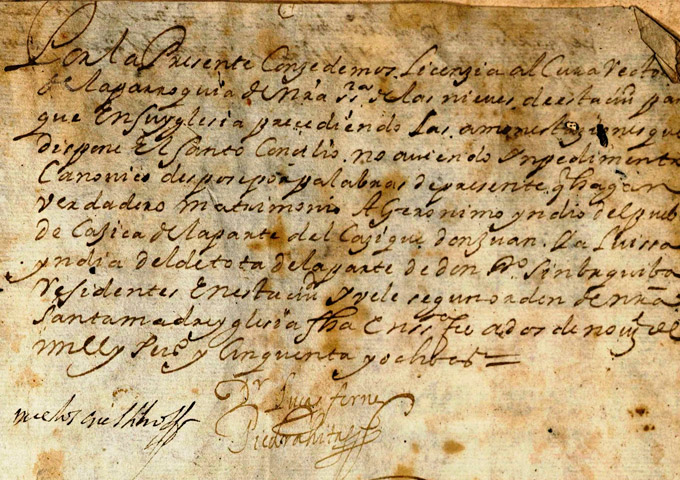 Por la Presente Consedemos Licenzia al Cura Recto
de la parroquia de nra sra de las nieves de esta ciud para
que En su yglesia precediendo Las amonestaziones que
dispone El santo Concilio. no aviendo ynpedimento
Canonico despose por palabras de presente q hagan
verdadero matrimonio A Geronimo yndio del pueb
de Casica de la parte del Casique don Juan. Y a Luissa
yndia del de tota de la parte de don Po
Residentes En esta ciud y vele segun orden de nra
santa madre yglesia fha En sta fe a dos de nouie de
mill y seis y Cinquenta y ocho as =
Dr Lucas ferns
Piedrahita